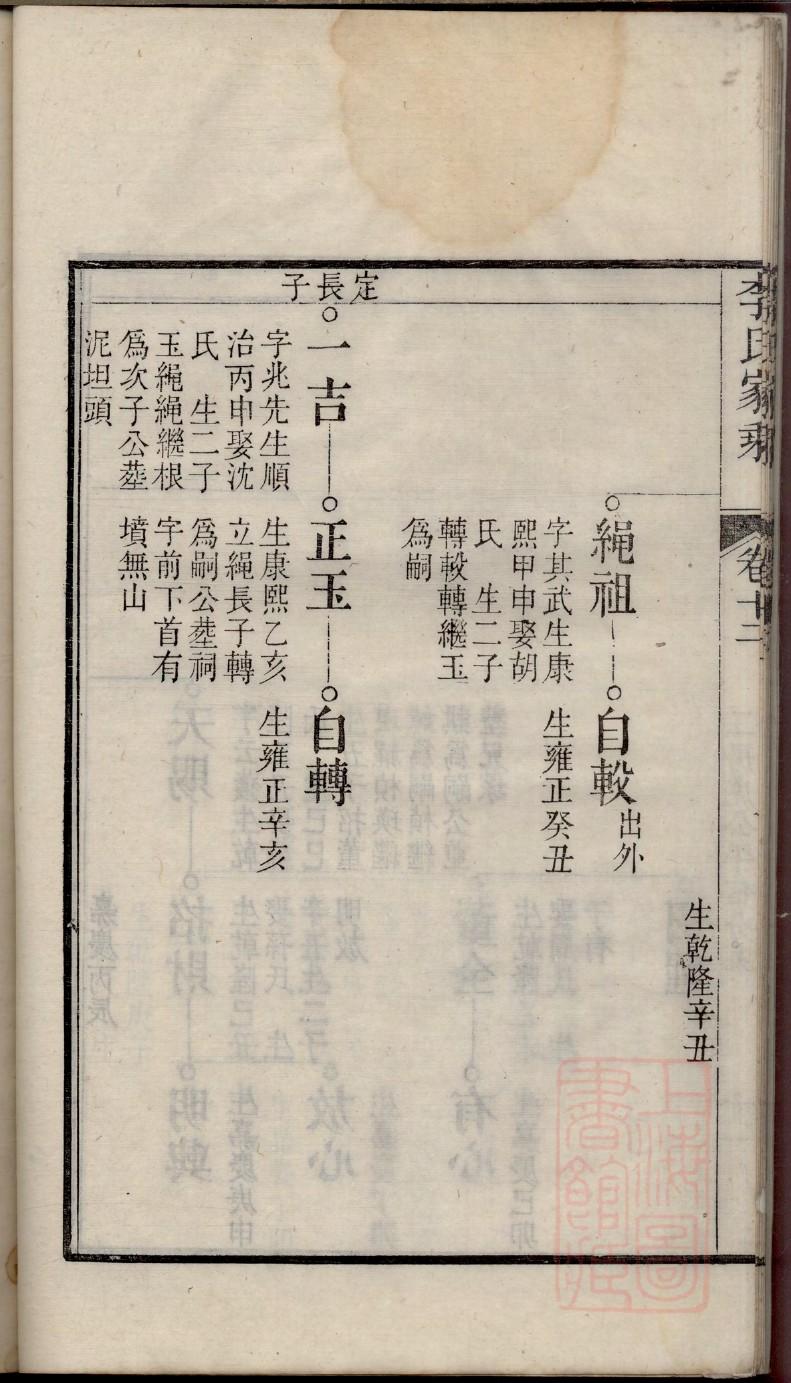 李氏家乘
卷十二
生乾隆辛丑
繩祖
字其武生康
熙甲申娶胡
氏 生二子
轉轂轉繼玉
爲嗣
自轂
出外
生雍正癸丑
定長子
一吉
字兆先生順
治丙申娶沈
氏 生二子
玉繩繩繼根
爲次子公塟
泥坦頭
正玉
生康熙乙亥
立繩長子轉
爲嗣公塟祠
字前下首有
墳無山
自轉
生雍正辛亥